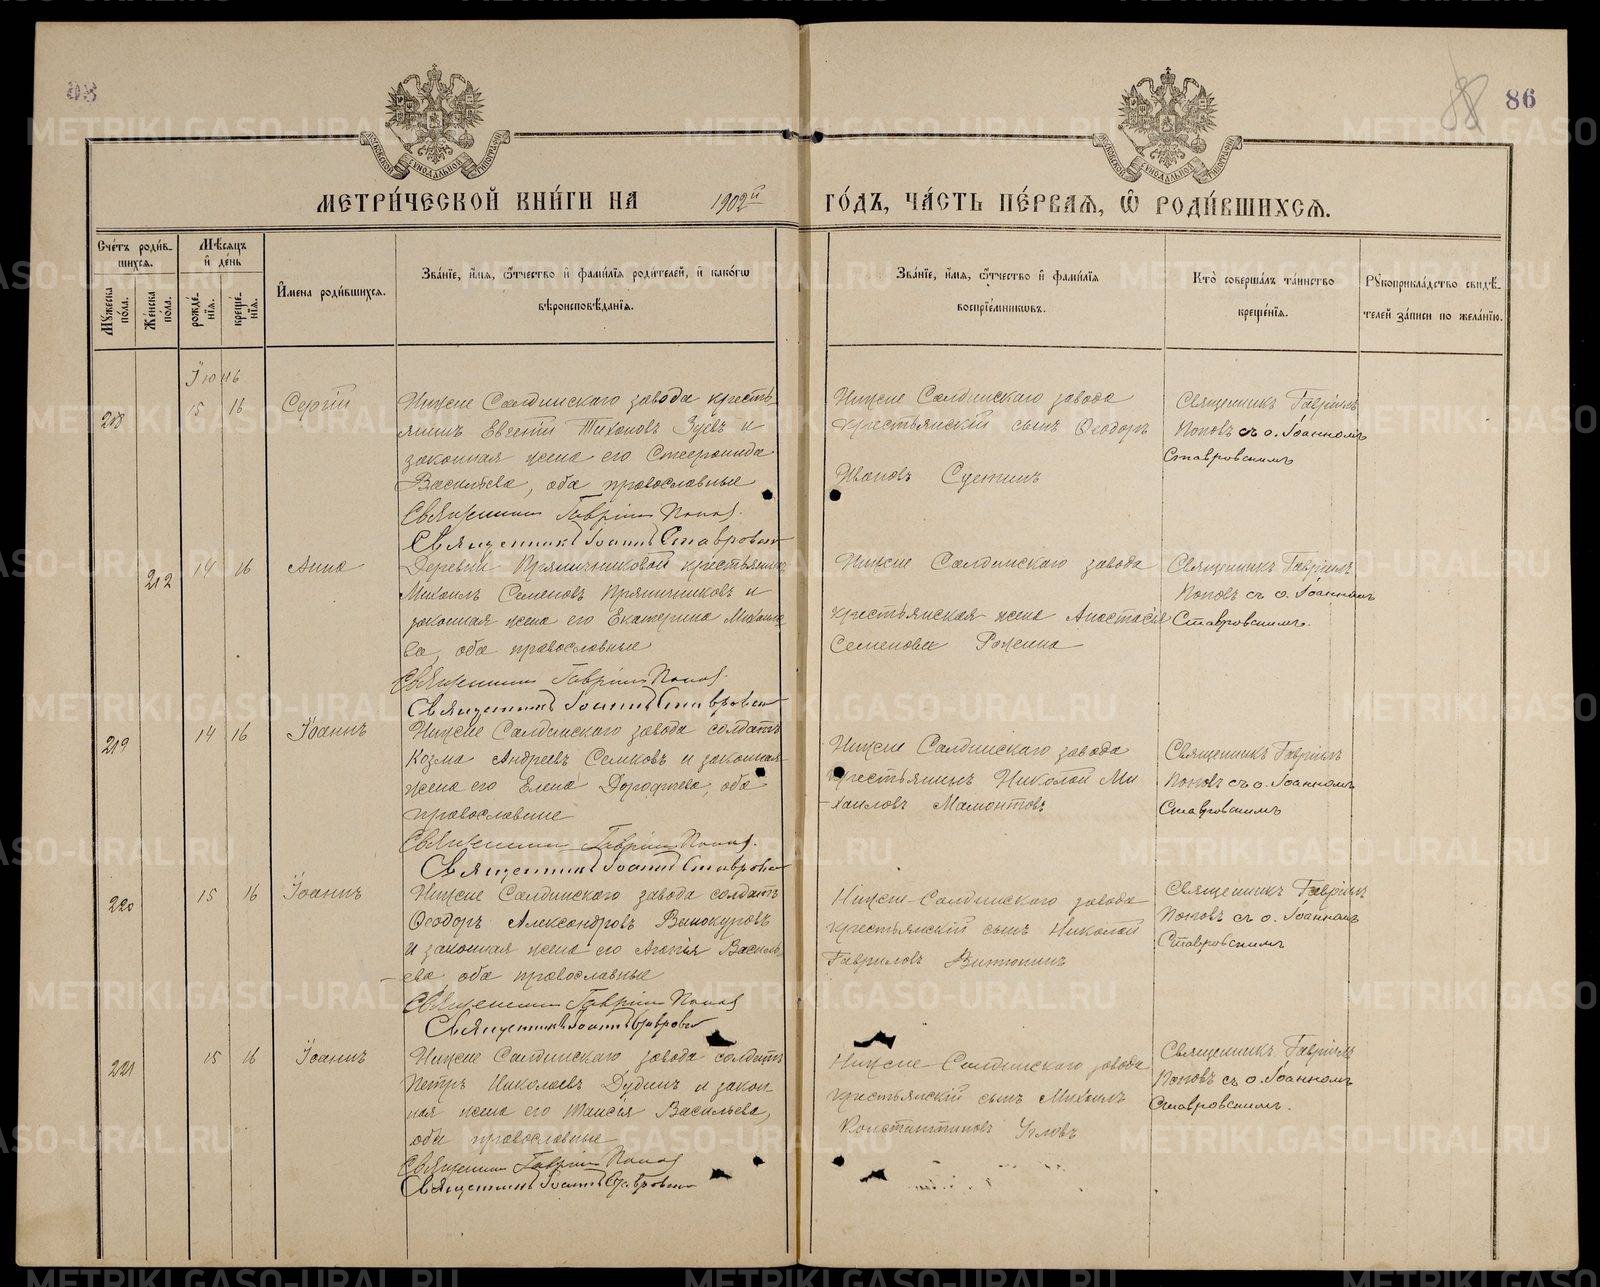 86
МЕТРИ́ЧЕСКОЙ КНИ́ГИ НА 1902й ГО́ДЪ, ЧА́СТЬ ПЕ́РВАЯ, Ѡ҆ РОДИ́ВШИХСЯ.
Сче́тъ роди́в-
шихся.
Мꙋжеска
по́ла.
Же́нска
по́ла.
Мѣ́сяцъ
и҆ де́нь
рожде́-
нїя.
креще́-
нїя.
И҆мена роди́вшихся.
Зва́нїе, и҆́мя, ѻ҆́тчество и҆ фами́лїя роди́телей, и҆ како́гѡ
вѣроисповѣ́данїя.
Зва́нїе, и҆́мя, ѻ҆́тчество и҆ фами́лїя
воспрїе́мникѡвъ.
Кто̀ соверша́лъ та́инство
креще́нїя.
Рꙋкоприкла́дство свидѣ́-
телей за́писи по жела́нїю.
Іюнь
218
15
16
Сергій
Нижне Салдинскаго завода кресть-
янинъ Евгеній Тихоновъ Зуевъ и
законная жена его
Васильева, оба православные
Священникъ Гавріилъ Попов.
Священникъ Іоаннъ Ставровскій
Нижне Салдинскаго завода
крестьянскій сынъ Ѳеодоръ
Ивановъ
Священникъ Гавріилъ
Поповъ съ о. Іоанномъ
Ставровскимъ
212
14
16
Анна
Деревни Пряничниковой крестьянинъ
Михаилъ Семеновъ Пряничниковъ и
законная жена его Екатерина Михаило
ва, оба православные
Священникъ Гавріилъ Попов.
Священникъ Іоаннъ Ставровскій
Нижне Салдинскаго завода
крестьянская жена Анастасія
Семеновна
Священникъ Гавріилъ
Поповъ съ о. Іоанномъ
Ставровскимъ.
219
14
16
Іоаннъ
Нижне Салдинскаго завода солдатъ
Козма Андреевъ Семковъ и законная
жена его Елена Дорофеева, оба
православные
Священникъ Гавріилъ Попов.
Священникъ Іоаннъ Ставровскій
Нижне Салдинскаго завода
крестьянинъ Николай Ми
-хаиловъ Мамонтовъ
Священникъ Гавріилъ
Поповъ съ о. Іоанномъ
Ставровскимъ
220
15
16
Іоаннъ
Нижне Салдинскаго завода солдатъ
Ѳеодоръ Александровъ Винокуровъ
и законная жена его Агапія Василь
-ева, оба православные
Священникъ Гавріилъ Попов
Священникъ Іоаннъ Ставровскій
Нижне Салдинскаго завода
крестьянскій сынъ Николай
Гавриловъ
Священникъ Гавріилъ
Поповъ съ о. Іоанномъ
Ставровскимъ
221
15
16
Іоаннъ
Нижне Салдинскаго завода солдатъ
Петръ Николаевъ Дудинъ и закон
ная жена его Таисія Васильева,
оба православные
Священникъ Гавріилъ Попов
Священникъ Іоаннъ Ставровскій
Нижне Салдинскаго завода
крестьянскій сынъ Михаилъ
Константиновъ Угловъ
Священникъ Гавріилъ
Поповъ съ о. Іоанномъ
Ставровскимъ.
METRIKI.GASO-URAL.RU